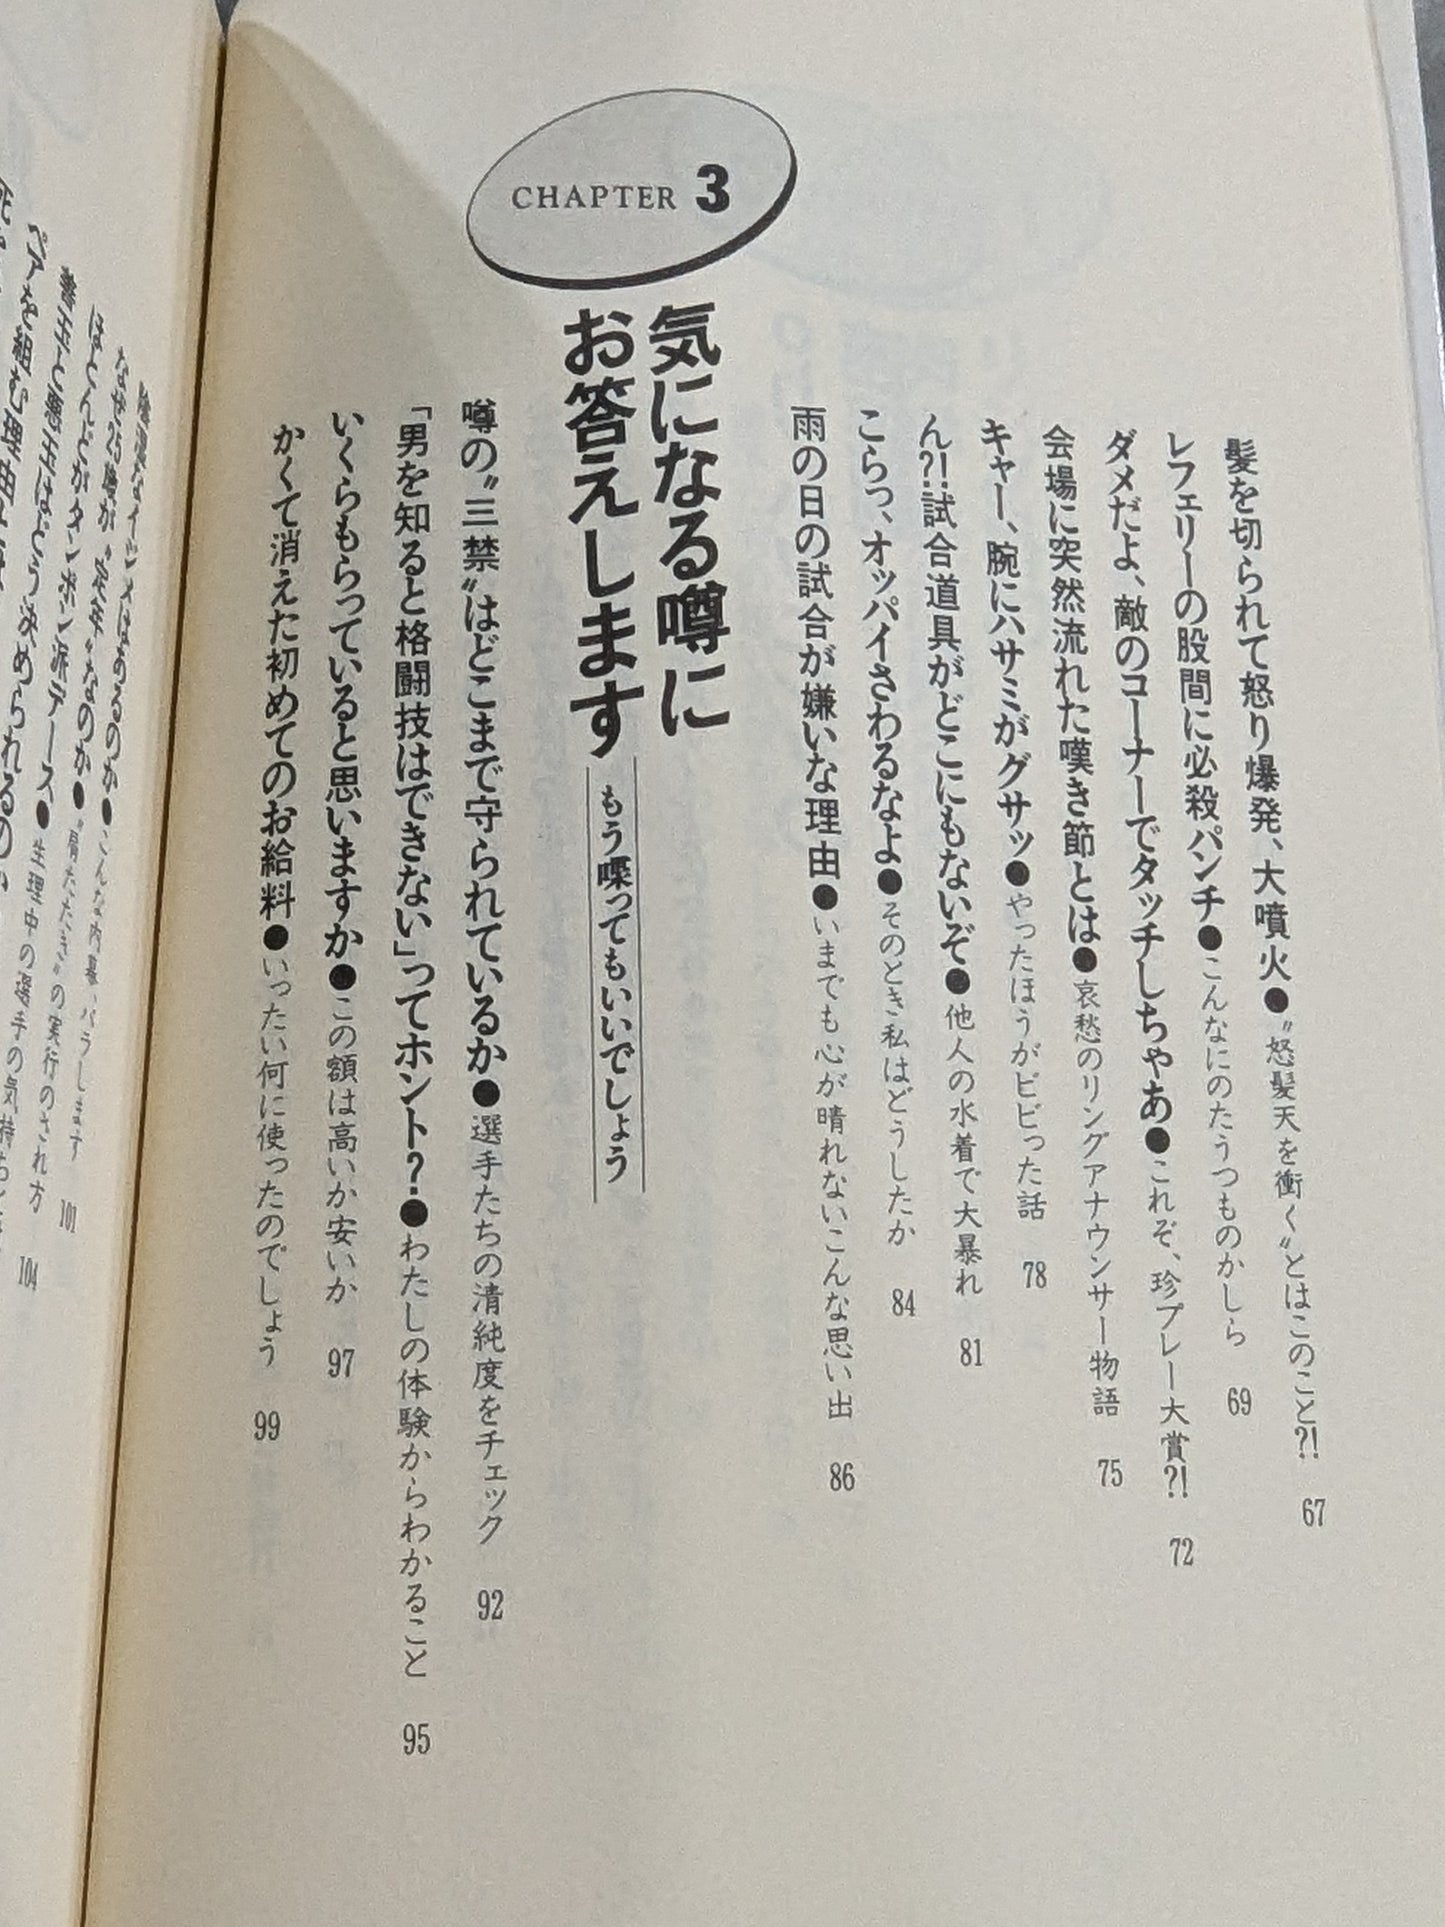 髪を切られて怒り爆発、大噴火●〝怒髪天を衝く〟とはこのこと?! 67
レフェリーの股間に必殺パンチ●こんなにのたうつものかしら 69
ダメだよ、敵のコーナーでタッチしちゃあ●これぞ、珍プレー大賞?! 72
会場に突然流れた嘆き節とは●哀愁のリングアナウンサー物語 75
キャー、腕にハサミがグサッ●やったほうがビビった話 78
ん?!試合道具がどこにもないぞ●他人の水着で大暴れ 81
こらっ、オッパイさわるなよ●そのとき私はどうしたか 84
雨の日の試合が嫌いな理由●いまでも心が晴れないこんな思い出 86
CHAPTER 3
気になる噂に
お答えします
もう喋ってもいいでしょう
噂の〝三禁〟はどこまで守られているか●選手たちの清純度をチェック 92
「男を知ると格闘技はできない」ってホント?●わたしの体験からわかること 95
いくらもらっていると思いますか●この額は高いか安いか 97
かくて消えた初めてのお給料●いったい何に使ったのでしょう 99
なイジメはあるのか●こんな内幕、バラします 101
なぜ25歳が〝定年〟なのか●〝肩たたき〟の実行のされ方 104
ほとんどがタンポン派デース●生理中の選手の気持
善玉と悪玉はどう決められるのか
ペアを組む理由